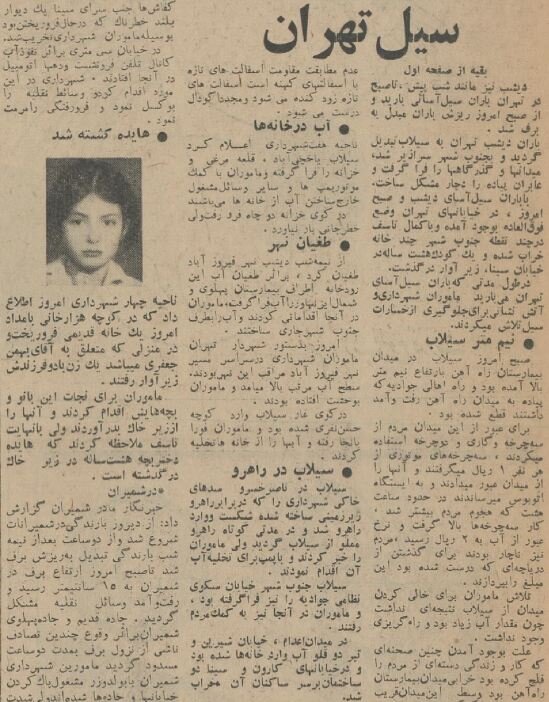 سیل تهران
بقیه از صفحه اول
دیشب نیز مانند شب پیش، تاصبح
در تهران باران سیل‌آسائی بارید و
از صبح امروز ریزش باران مبدل به
برف شد.
باران دیشب تهران به سیلاب‌تبدیل
گردید و بجنوب شهر سرازیر شد،
میدانها و گذرگاهها را فرا گرفت و
عابران پیاده را دچار مشکل ساخت.
باباران سیل‌آسای دیشب و صبح
امروز، در خیابانهای تهران وضع
فوق‌العاده بوجود آمده وباکمال تاسف
درچند نقطه جنوب شهر چند خانه
خراب شده و یک کودک‌هشت ساله‌در
خیابان سینا، زیر آوار درگذشت.
درطول مدتی که‌باران سیل‌آسای
تهران می‌بارید ماموران شهرداری‌و
آتش نشانی‌برای‌جلوگیری ازخسارات
سیل‌تلاش میکردند.
● نیم متر سیلاب
صبح امروز سیلاب در میدان
بیمارستان راه آهن بارتفاع نیم متر
بالا آمده بود و راه اهالی جوادیه‌که
پیاده به میدان راه آهن رفت وآمد
داشتند قطع شده بود.
برای عبور از این میدان مردم از
سه‌چرخه و گاری و دوچرخه استفاده
میکردند، سه‌چرخه‌های موتوری از
هر نفر ۱ ریال میگرفتند و آنها را
از میدان عبور میدادند و به ایستگاه
اتوبوس میرساندند در حدود ساعت
هشت که هجوم مردم بیشتر شد
کار سه‌چرخه‌ها بالا گرفت و نرخ
عبور از آب به ۲ ریال رسید، مردم
نیز ناچار بودند برای گذشتن از
دریاچه‌ای که درست شده بود این
مبلغ رابپردازند.
تلاش ماموران برای خالی کردن
میدان از سیلاب نتیجه‌ای نداشت
چون مقدار آب زیاد بود و راه‌گریزی
وجود نداشت.
علت بوجود آمدن چنین صحنه‌ای
که کار و زندگی دسته‌ای از مردم را
فلج کرده بود خرابی‌میدان‌بیمارستان
راه‌آهن بود وسط این‌میدان‌قریب
عدم مطابقت مقاومت آسفالت های تازه
با آسفالتهای کهنه است آسفالت های
تازه زود کنده می شود ومجدداگودال
درست می شود.
● آب درخانه‌ها
ناحیه هفت‌شهرداری اعلام کرد
سیلاب یاخچی‌آباد، قلعه مرغی و
خزانه را فرا گرفته وماموران با کمک
موتورپمپ ها و سایر وسائل‌مشغول
خارج‌ساختن آب از خانه ها می‌باشند
در کوی خزانه دو چاه فرو رفت‌ولی
خطرجانی ببار نیاورد.
● طغیان نهر
از نیمه‌شب دیشب نهر فیروز آباد
طغیان کرد، براثر طغیان آب این
رودخانه اطراف بیمارستان پهلوی و
شمال‌این‌نهاررا‌آب‌فرا‌گرفت،ماموران
در آنجا اقداماتی کردند وآب‌رابطرف
جنوب شهرجاری ساختند.
امروز بدستور شهردار تهران
ماموران شهرداری درسراسر مسیر
نهر فیروز آباد مراقب این نهربودند،
سطح آب مرتب بالا میامد و ماموران
بوحشت افتاده بودند.
درکوی غار سیلاب وارد کوچه
حسن‌نفری شده بود و ماموران فورا
بانجا رفته و آنها را از خانه هاتخلیه
کردند.
● سیلاب در راهرو
سیلاب در ناصرخسرو سدهای
خاکی شهرداری را که دربرابرراهرو
زیرزمینی ساخته شده شکست ووارد
راهرو شد و در مدتی کوتاه راهرو
مملو از سیلاب گردید ولی ماموران
را خبر کردند و باپمپ‌برای تخلیه‌آب
آن اقدام نمودند.
سیلاب جنوب شهر خیابان سکوی
نظامی جوادیه را نیز فراگرفته بود،
و ماموران در آنجا نیز به کمک‌مردم
رفتند.
در میدان‌اعدام، خیابان شیرین و
تیر دو قلو آب وارد‌خانه‌ها شده بود
و درخیابانهای کارون و سینا دو
ساختمان‌برسر ساکنان آن خراب
شد.
کفاش‌ها جنب سرای سینا یک دیوار
بلند خطرناک که درحال‌فروریختن‌بود
بوسیله‌ماموران شهرداری‌تخریب‌شد.
در خیابان سی متری براثر نفوذآب
کانال تلفن فرونشست ودهها اتومبیل
در آنجا افتادند. شهرداری در این
موزه اقدام کردو وسائط نقلیه را
بوکسل نمود و فرورفتگی رامرمت
نمود.
● هایده کشته شد
ناحیه چهار شهرداری امروز اطلاع
داد که در کوچه هزارخانی بامداد
امروز یک خانه قدیمی فروریخت‌و
در منزلی که متعلق به آقای‌بهمن
جعفری میباشد یک زن‌بادوفرزندش
زیرآوار رفتند.
ماموران برای نجات این بانو و
بچه‌هایش اقدام کردند و آنها را
اززیر خاک بدرآوردند ولی بانهایت
تاسف ملاحظه کردند که هایده
دختربچه هشت‌ساله در زیر خاک
درگذشته است.
●درشمیران
خبرنگار مادر شمیران گزارش
داد: از دیروز بارندگی‌درشمیرانات
شروع شد و از دوساعت بعداز نیمه
شب بارندگی تبدیل به‌ریزش برف
شد تاصبح امروز ارتفاع برف در
شمیران به ۱۵ سانتیمتر رسید و
رفت‌وآمد وسائل نقلیه مشکل
گردید. جاده قدیم و جاده‌پهلوی
شمیران‌براثر وقوع چندین تصادف
ناشی از نزول برف بمدت دوساعت
مسدود گردید مامورین شهرداری
شمیران بابولدوزر مشغول‌پاک‌کردن
خیابانها و جاده‌ها شده‌اند‌ولی‌شدت